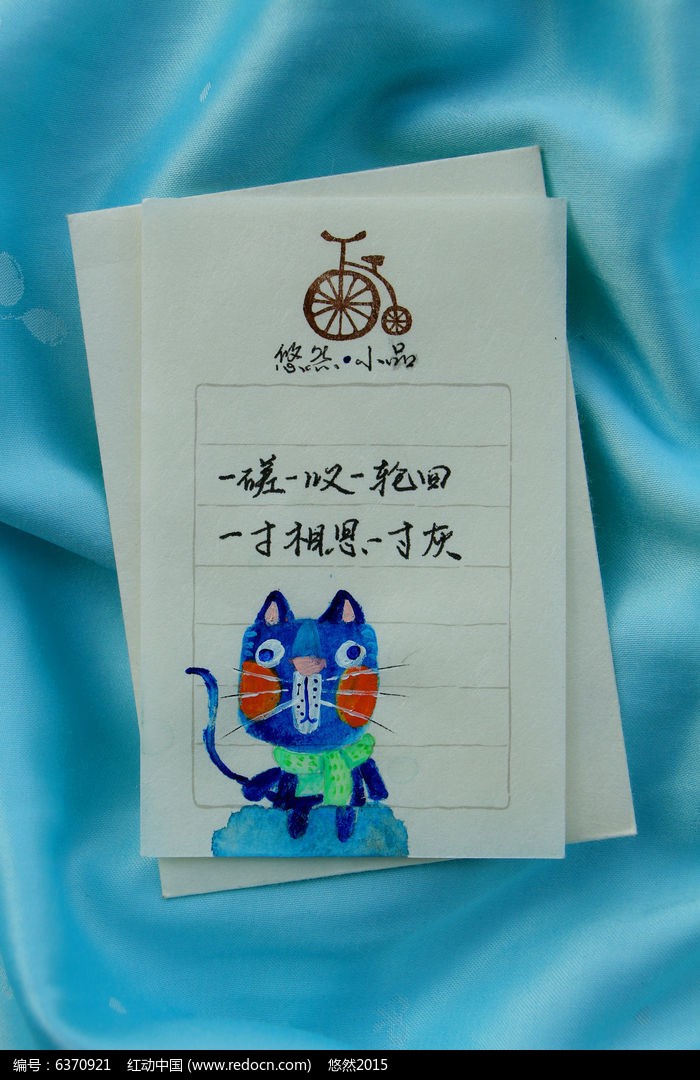 悠然·小品
一磋一叹一轮回
一寸相思一寸灰
编号：6370921 红动中国 (www.redocn.com) 悠然2015